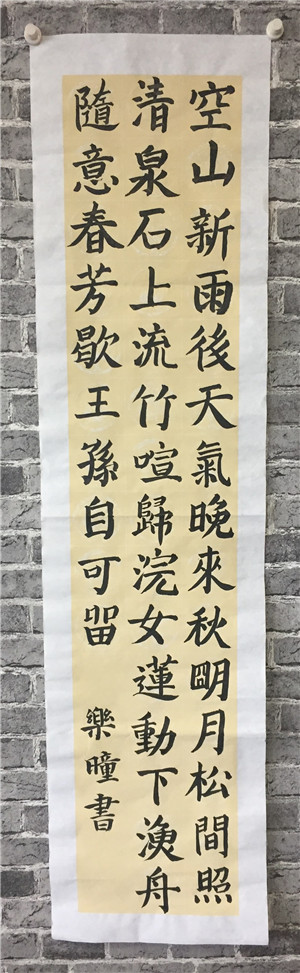 空山新雨後天氣晚來秋明月松間照
清泉石上流竹喧歸浣女蓮動下漁舟
隨意春芳歇王孫自可留
樂瞳書